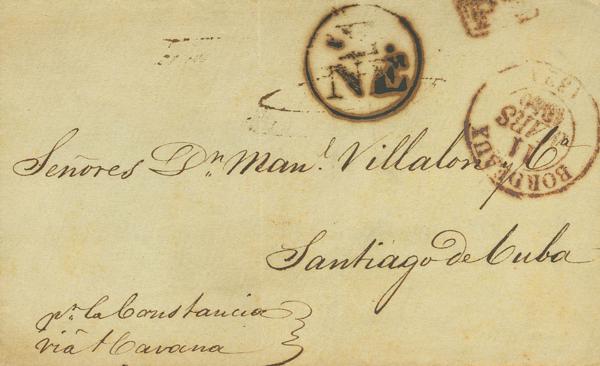 NE
BORDEAUX
11
MARS
1850
Señores Dn. Manl. Villalon y Ca
Santiago de Cuba
pr. la Constancia
via Havana